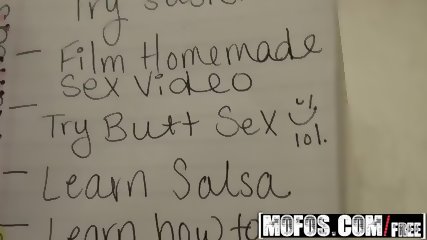 Try
- Film Homemade
sex video
- Try Butt Sex
lol.
- Learn Salsa
- Learn how to
MOFOS.COM/FREE